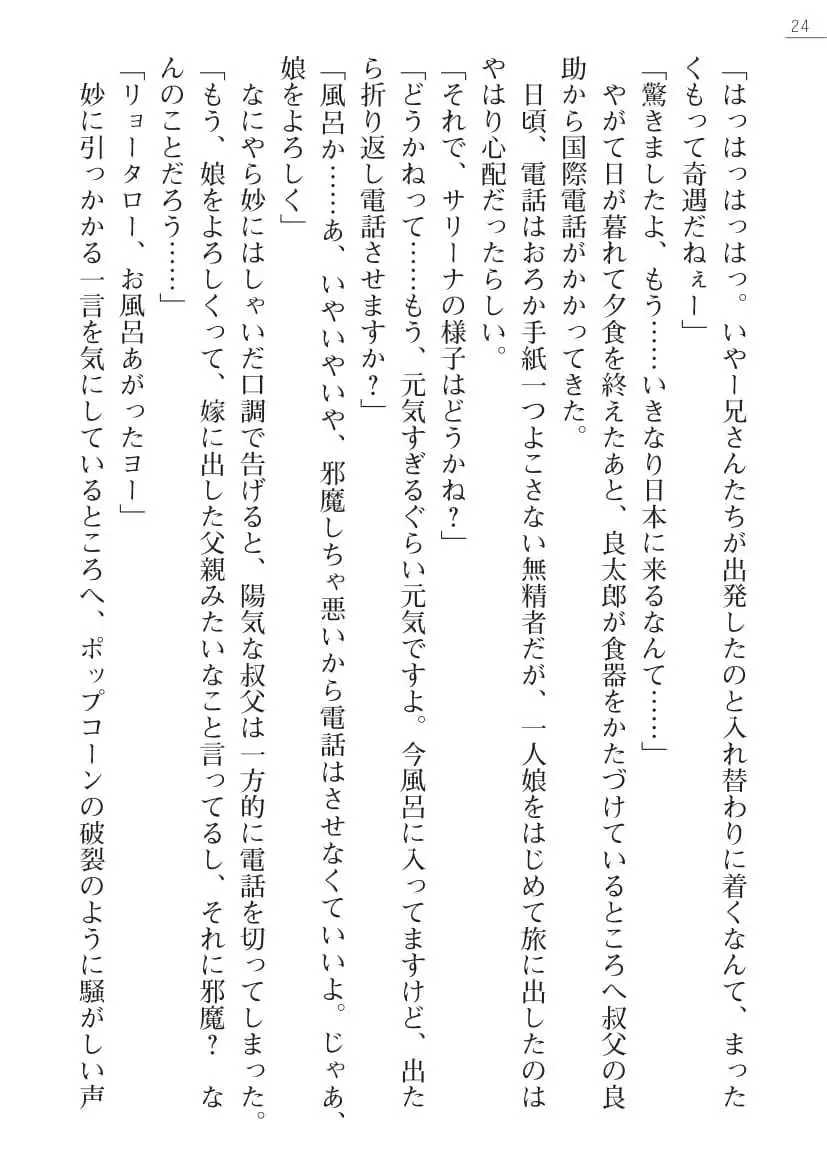 24
「はっはっはっはっ。いやー兄さんたちが出発したのと入れ替わりに着くなんて、まった
くもって奇遇だねぇー」
「驚きましたよ、もう……いきなり日本に来るなんて……」
やがて日が暮れて夕食を終えたあと、良太郎が食器をかたづけているところへ叔父の良
助から国際電話がかかってきた。
日頃、電話はおろか手紙一つよこさない無精者だが、一人娘をはじめて旅に出したのは
やはり心配だったらしい。
「それで、サリーナの様子はどうかね？」
「どうかねって……もう、元気すぎるぐらい元気ですよ。今風呂に入ってますけど、出た
ら折り返し電話させますか？」
「風呂か……あ、いやいやいや、邪魔しちゃ悪いから電話はさせなくていいよ。じゃあ、
娘をよろしく」
なにやら妙にはしゃいだ口調で告げると、陽気な叔父は一方的に電話を切ってしまった。
「もう、娘をよろしくって、嫁に出した父親みたいなこと言ってるし、それに邪魔？　な
んのことだろう……」
「リョータロー、お風呂あがったヨー」
妙に引っかかる一言を気にしているところへ、ポップコーンの破裂のように騒がしい声